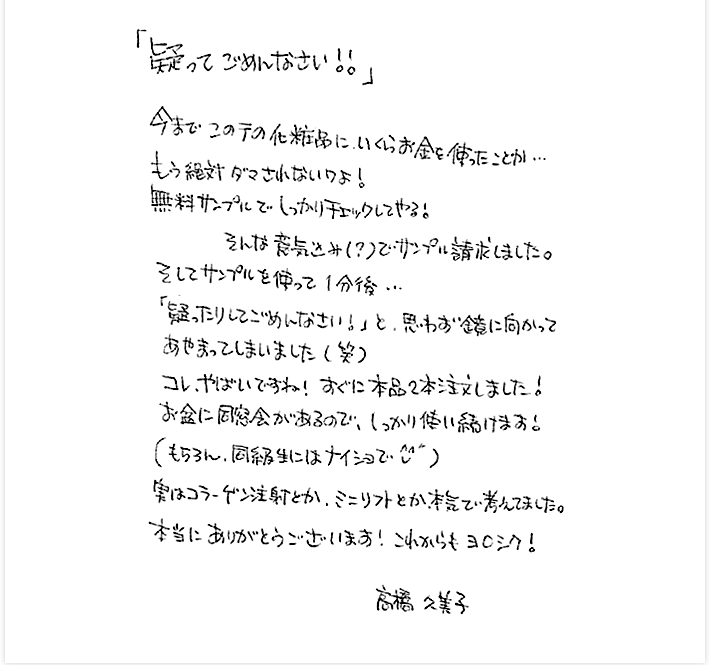 「疑って ごめんなさい!!」
今まで このテの化粧品に、いくらお金を使ったことか…
もう絶対ダマされないワよ!
無料サンプルで しっかりチェックしてやる!
そんな意気込み(?)でサンプル請求しました。
そしてサンプルを使って 1分後…
「疑ったりしてごめんなさい!」と、思わず鏡に向かって
あやまってしまいました(笑)
コレ、やばいですね! すぐに本品2本注文しました!
お盆に同窓会があるので、しっかり使い続けます!
(もちろん、同級生にはナイショで^^)
実はコラーゲン注射とか、ミニリフトとか、本気で考えてました。
本当に ありがとうございます! これからも ヨロシク!
高橋 久美子